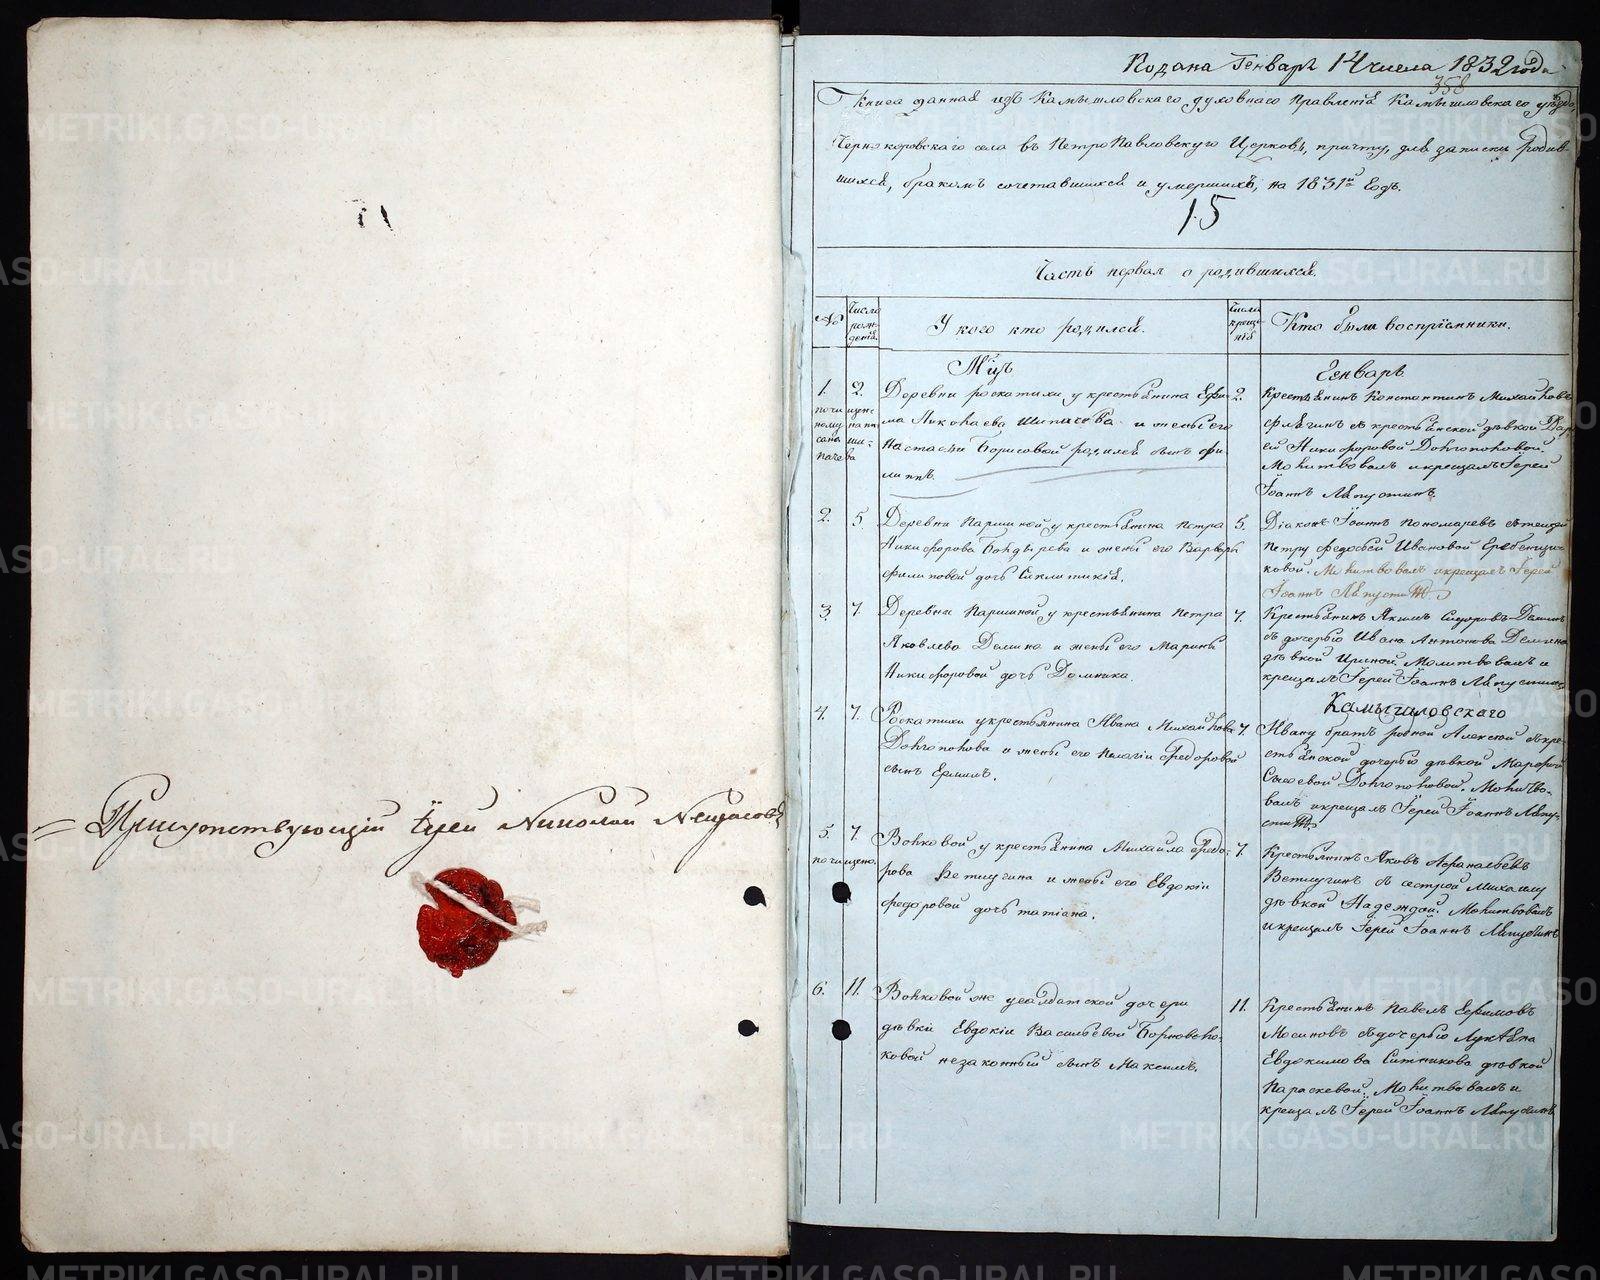 Присутствующій Іерей Николай
Подана Генваря 14 числа 1832 года
358
Книга данная изъ Камышловскаго духовнаго Правленія Камышловскаго уѣзда,
Черноковскаго села въ ПетроПавловскую Церковь, причту, для записки родив-
шихся, бракомъ сочетавшихся и умершихъ, на 1831й Годъ.
15
Часть первая о родившихся.
№
Число рож-денія.
У кого кто родился.
Число креще-нія
Кто были воспріемники.
Мцъ
Генварь
1.
2.
Деревни роскатихи у крестьянина Ефи-
ма Николаева Шипачева и жены его
Настасьи Борисовой родился сынъ Фи-
липпъ.
2.
Крестьянинъ Константинъ Михайловъ
съ крестьянской дѣвкой Дар-
ей Никифоровой Долгополовой.
Молитвовалъ и крещалъ Іерей
Іоаннъ Ляпустинъ.
2.
5.
Деревни Паршиной у крестьянина Петра
Никифорова Болдырева и жены его Варвары
Филиповой дочь Синклитикія.
5.
Діаконъ Іоаннъ Пономаревъ
Петру Федосьей Ивановой Гребенщи-
ковой. Молитвовалъ и крещалъ Іерей
Іоаннъ Ляпустинъ
3.
7.
Деревни Паршиной у крестьянина Петра
Яковлева Демина и жены его Марины
Никифоровой дочь Домника.
7.
Крестьянинъ Якимъ Сидоровъ Деминъ
съ дочерью Ивана Антонова Демина
дѣвкой Ириной. Молитвовалъ и
крещалъ Іерей Іоаннъ Ляпустинъ
Камышловскаго
4.
7.
Роскатихи у крестьянина Ивана Михайлова
Долгополова и жены его Пелагіи Федоровой
сынъ Ермилъ.
7.
Ивану братъ родной Алексей съ кре-
стьянской дочерью дѣвкой Марфой
Сысоевой Долгополовой. Молитво-
валъ и крещалъ Іерей Іоаннъ Ляпу-
стинъ
5.
7.
Волковой у крестьянина Михаила Федо-
рова Ветлугина и жены его Евдокіи
Федоровой дочь Татіана.
7.
Крестьянинъ Яковъ Афанасьевъ
Ветлугинъ съ сестрой Михаилу
дѣвкой Надеждой. Молитвовалъ
и крещалъ Іерей Іоаннъ Ляпустинъ
6.
11.
Волковой же у солдатской дочери
дѣвки Евдокіи Васильевой Борноволо-
ковой незаконный сынъ Максимъ.
11.
Крестьянинъ Павелъ Ефимовъ
Мосиновъ съ дочерью Лукьяна
Евдокимова Ситникова дѣвкой
Параскевой. Молитвовалъ и
крещалъ Іерей Іоаннъ Ляпустинъ
METRIKI.GASO-URAL.RU